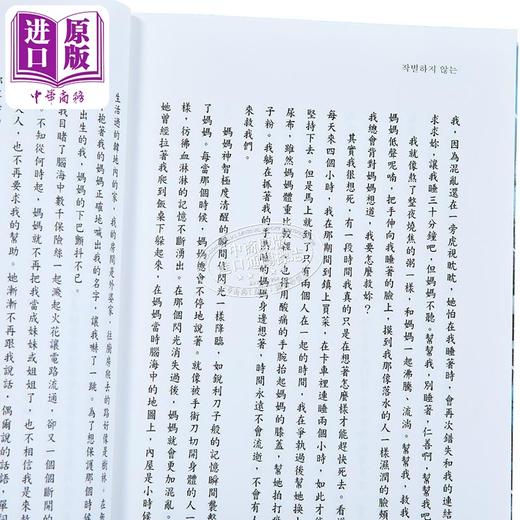 进口
原版
中華商務
작별하지 않는
我，因為混亂還在一旁虎視眈眈，她怕在我睡著時，會再次錯失和我的連結
求求妳，讓我睡三十分鐘吧。但媽媽不聽。幫幫我，別睡著，仁善啊，幫幫我
我就像熬了整夜燒焦的粥一樣，和媽媽一起沸騰、流淌。幫幫我，救我
媽媽低聲呢喃，把手伸向我睡著的臉上，摸到我那像落水的人一樣濕潤的臉頰
我總會背對媽媽想道，我要怎麼救妳？
其實我很想死，有一段時間我真的只是在想著怎麼樣才能趕快死去。看
每天來四個小時，我在那期間到鎮上買菜，在卡車裡連睡兩個小時，如此才
堅持下去。但是馬上就到了只有兩個人在一起的時間，我在爭執過後幫她換
尿布，雖然媽媽體重比較輕，也得用酸痛的手腕抬起媽媽的膝蓋，幫她拍打
子粉。我躺在抓著我的手馬睡的媽媽身邊想著，時間永遠不會流逝，不會有人
來救我們。
媽媽神智極度清醒的瞬間像閃光一樣降臨，如銳利刀子般的記憶瞬間襲擊
了媽媽。每當那個時候，媽媽總會不停地說著。就像被手術刀切開身體的人一
樣，彷彿血淋淋的記憶不斷湧出。在那個閃光消失過後，媽媽就會更加混亂。
她曾經拉著我爬到飯桌下躲起來，在媽媽當時腦海中的地圖上，內屋是小時候
生活過的韓地內的家，我的房間是外婆家，往廚房爬去的路好像是樹林。在無
抱著我的媽媽正確地喊出我的名字，讓我嚇了一跳。為了想保護那個時候
出生的我，媽媽的下巴顫抖不已。
我目睹了腦海中數千保險絲一起濺起火花讓電路流通，卻又一個個斷開的
不知從何時起，媽媽就不再把我當成妹妹或姐姐了，也不相信我是來救
人，也不再要求我的幫助。她漸漸不再跟我說話，偶爾說的話語，單